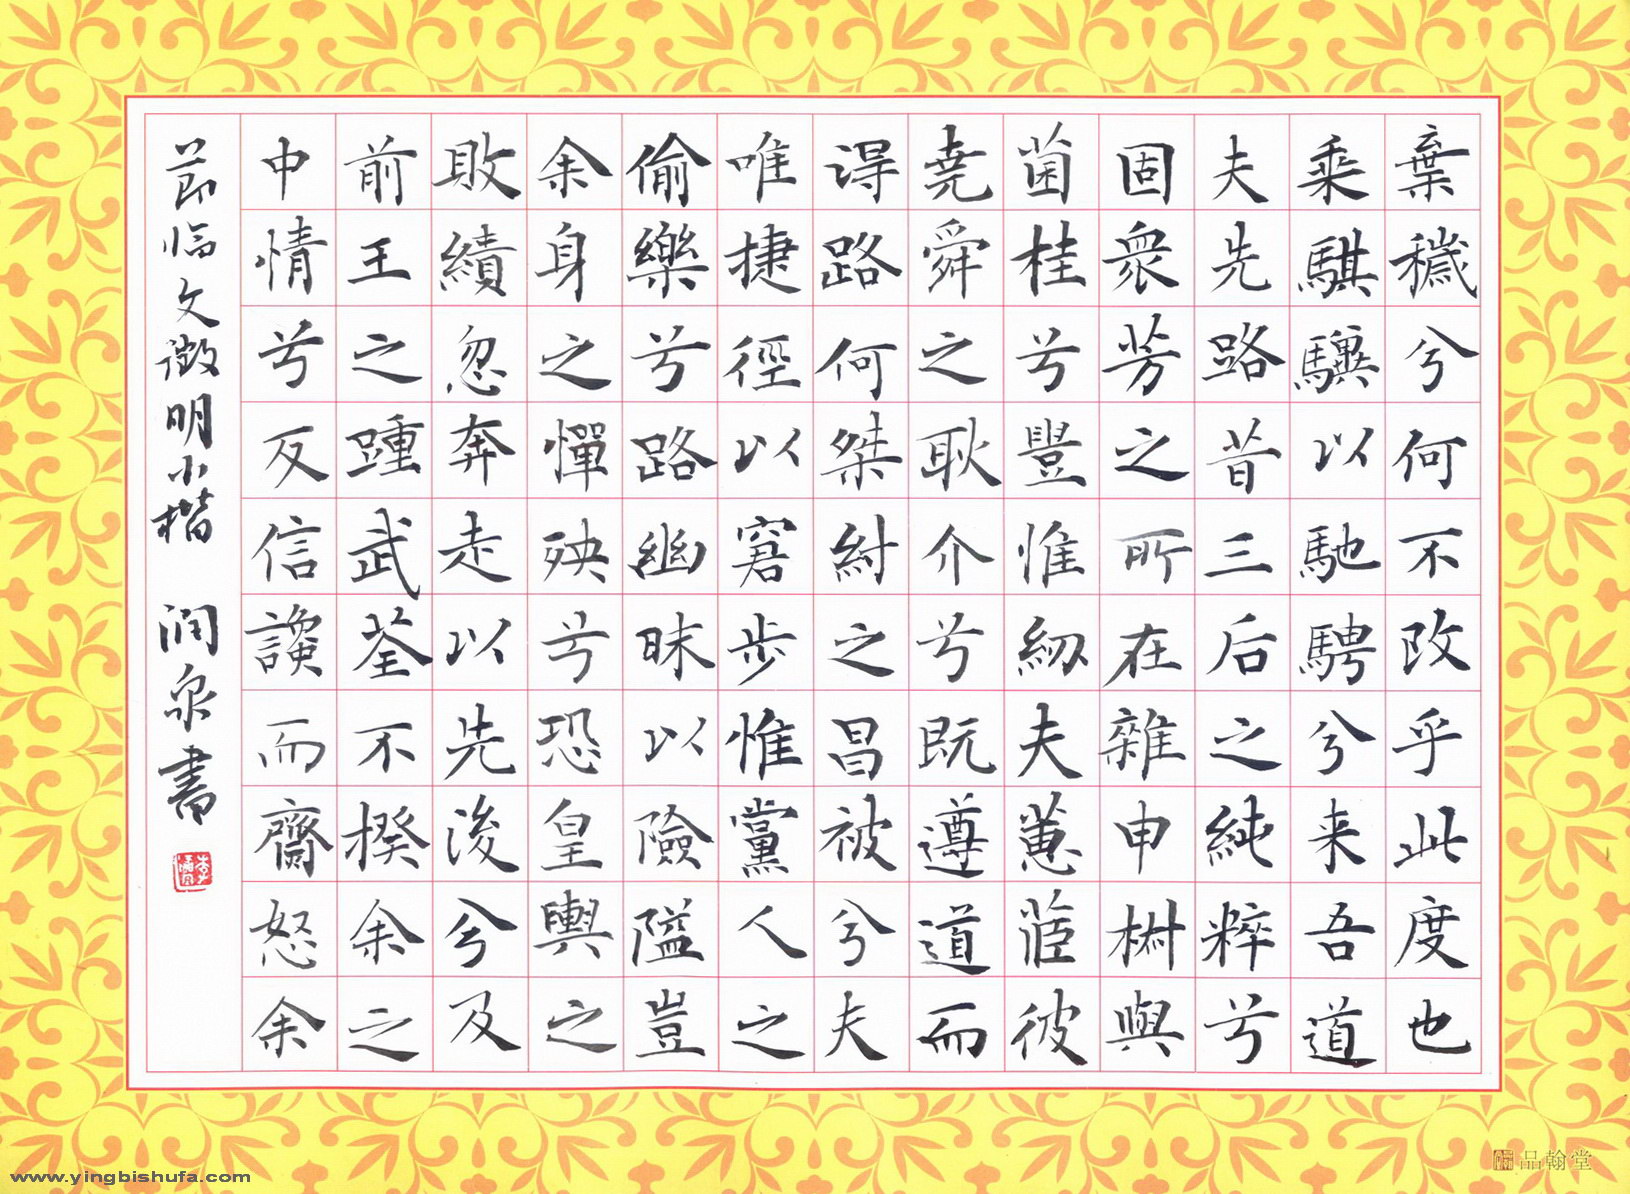 棄穢兮何不改乎此度也
乘騏驥以馳騁兮来吾道
夫先路昔三后之純粹兮
固衆芳之所在雜申椒與
菌桂兮豈惟紉夫蕙茝彼
堯舜之耿介兮既遵道而
得路何桀紂之昌被兮夫
唯捷徑以窘步惟黨人之
偷樂兮路幽昧以險隘豈
余身之憚殃兮恐皇輿之
敗績忽奔走以先後兮及
前王之踵武荃不揆余之
中情兮反信讒而齋怒余
节临文徵明小楷 润泉書
www.yingbishufa.com
品翰堂